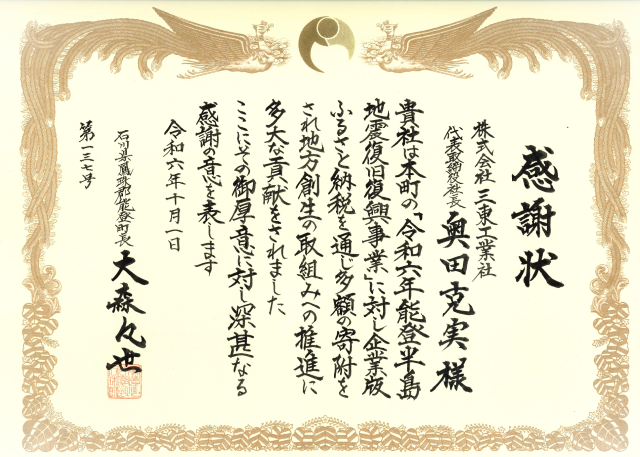 感謝状
株式会社 三東工業社
代表取締役社長 奥田克実様
貴社は本町の「令和六年能登半島
地震復旧復興事業」に対し企業版
ふるさと納税を通じ多額の寄附を
され地方創生の取組みへの推進に
多大な貢献をされました
ここにその御厚意に対し深甚なる
感謝の意を表します
令和六年十月一日
石川県鳳珠郡能登町長 大森凡世
第一三七号